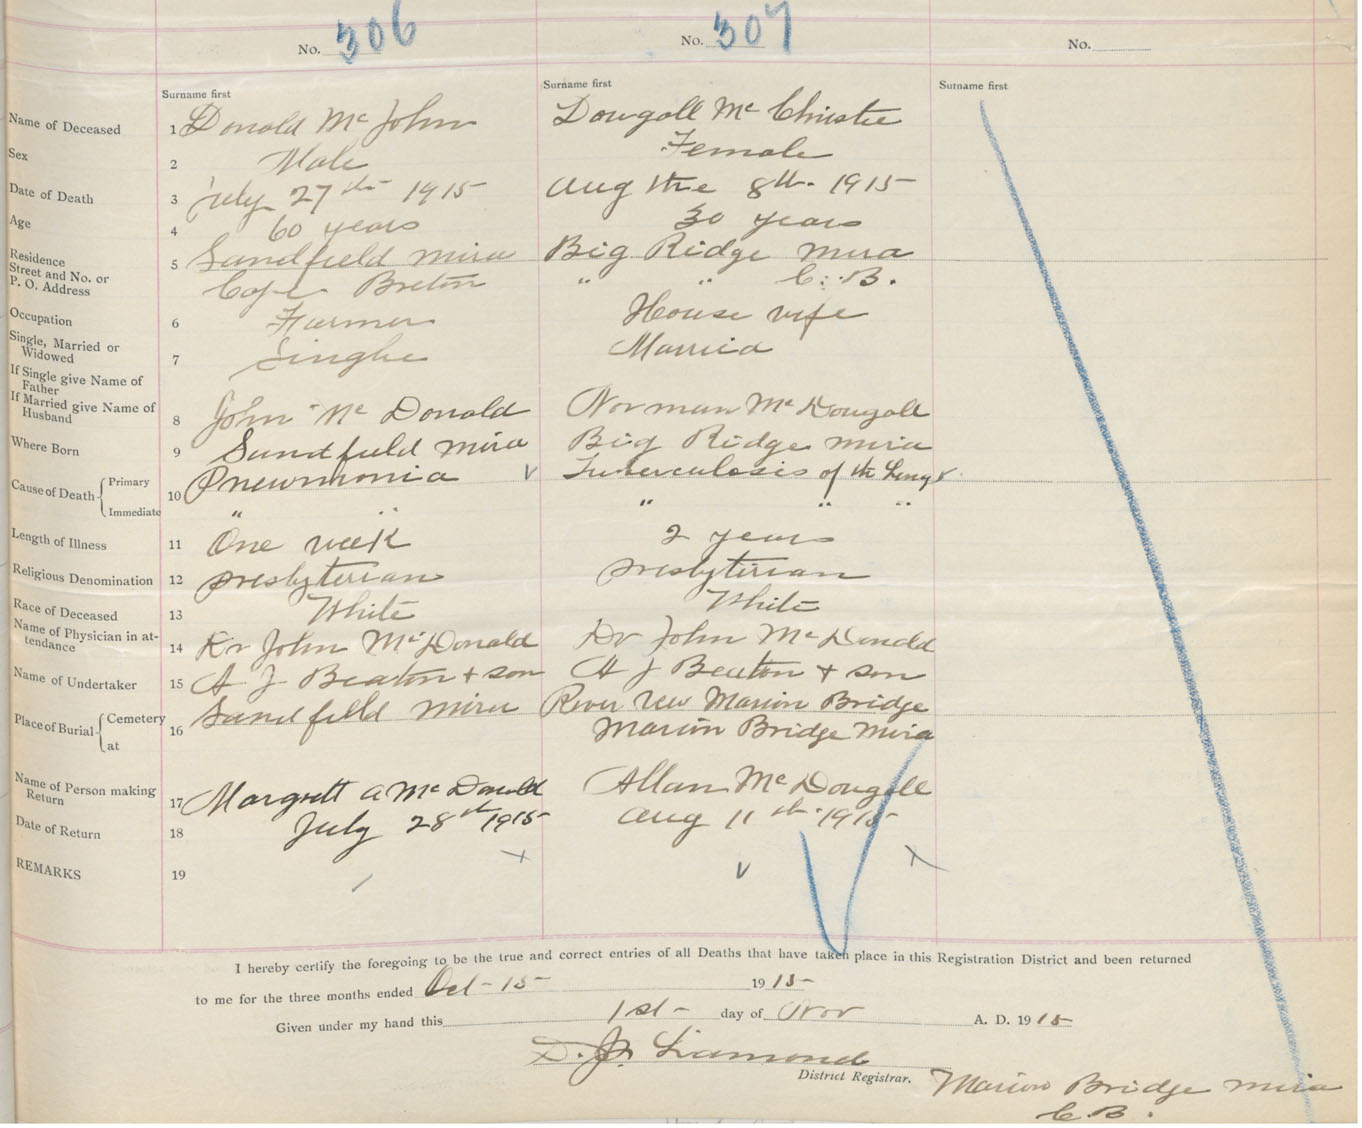 No. 306 No. 307 No.
Surname first Surname first Surname first
Name of Deceased 1 Donald Mc John Dougall Mc Christie
Sex 2 Male Female
Date of Death 3 July 27th 1915 Aug the 8th. 1915
Age 4 60 years 30 years
Residence Street and No. or P. O. Address 5 Sandfield Mira Big Ridge Mira
Cape Breton " " C. B.
Occupation 6 Farmer House wife
Single, Married or Widowed 7 Single Married
If Single give Name of Father
If Married give Name of Husband 8 John Mc Donald Norman Mc Dougall
Where Born 9 Sandfield Mira Big Ridge Mira
Cause of Death Primary 10 Pneumonia Tuberculosis of the Lung
Immediate " " " " "
Length of Illness 11 One week 2 years
Religious Denomination 12 Presbyterian Presbyterian
Race of Deceased 13 White White
Name of Physician in attendance 14 Dr John McDonald Dr John McDonald
Name of Undertaker 15 A J Beaton + son A J Beaton + son
Place of Burial Cemetery 16 Sandfield Mira River Marion Bridge
at Marion Bridge Mira
Name of Person making Return 17 Margrett a McDonald Allan McDougall
Date of Return 18 July 28th 1915 Aug 11th 1915
REMARKS 19
I hereby certify the foregoing to be the true and correct entries of all Deaths that have taken place in this Registration District and been returned
to me for the three months ended Oct - 15 1915
Given under my hand this 1st day of Nov A. D. 1915
D. J.
District Registrar. Marion Bridge Mira
C. B.